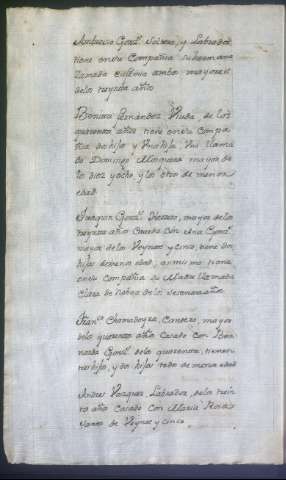 Ambrosio Gonz.ˢ Soltero, y Labrador
tiene en su Compañia su hermana
llamada ambos mayores
delos treynta años
Benita Fernández Viuda, de los
quarenta años tiene en su Compa
ñia dos hijos y Una hija, Uno llama
do Domingo Mosquera mayor de
los diez y ocho y los otros de menor
edad
Joaquin Gonz.ˢ mayor delos
treynta años Casado con Ana Gonz.ˢ
mayor delos Veynte y cinco, tiene dos
hijos demenor edad, asimismo tiene
en su Compañia su Madre llamada
Clara de Noboa de los Sesenta años
Fran.ᶜᵒ Chamadoyra, Cantero, mayor
delos quarenta años Casado con Ber
narda Gonz.ˢ delos quarenta, tienen
un hijo, y dos hijas todos de menor edad
Andres Vazquez Labrador, delos trein
ta años Casado con Maria
de Veynte y cinco